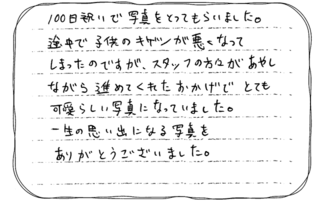 100日祝いで写真をとってもらいました。
途中で子供のキゲンが悪くなって
しまったのですが、スタッフの方々があやし
ながら進めてくれたおかげで とても
可愛らしい写真になっていました。
一生の思い出になる写真を
ありがとうございました。